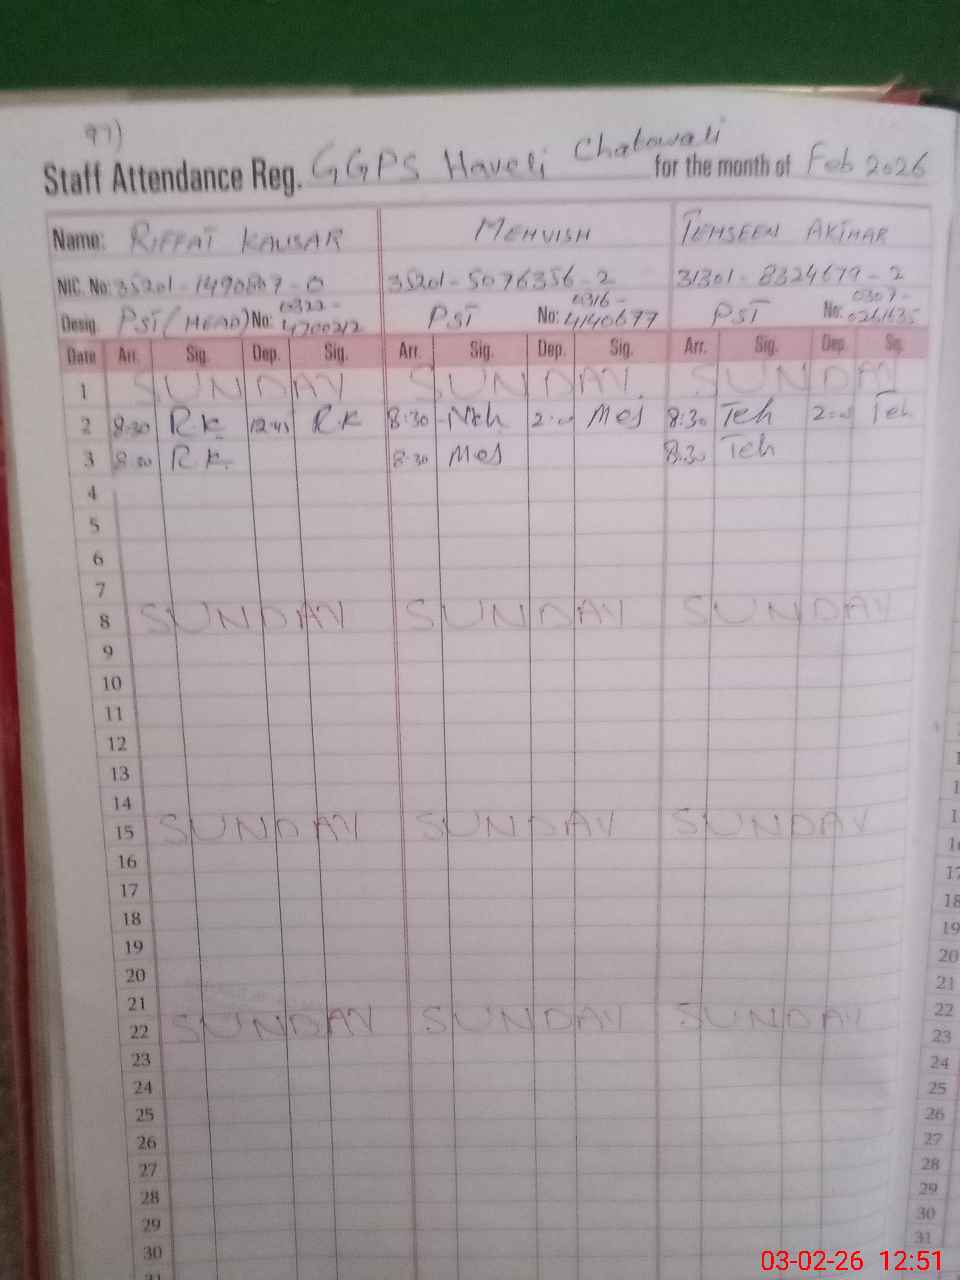 97)
Staff Attendance Reg. GGPS Haveli Chalowali for the month of Feb 2026
Name: RIFFAT KAUSAR MEHVISH TEHSEEN AKTHAR
NIC. No: 35201-5076356-2 31301-8324679-2
Desig. PST (HEAD) No: 0322-4700212 PST No: 0316-4140677 PST No: 0307-0261635
Date Arr. Sig. Dep. Sig. Arr. Sig. Dep. Sig. Arr. Sig. Dep. Sig.
1 SUNDAY SUNDAY SUNDAY
2 8:30 RK 12:45 RK 8:30 Meh 2:00 Mes 8:30 Teh 2:00 Teh
3 8:30 RK 8:30 Mes 8:30 Teh
4
5
6
7
8 SUNDAY SUNDAY SUNDAY
9
10
11
12
13
14
15 SUNDAY SUNDAY SUNDAY
16
17
18
19
20
21
22 SUNDAY SUNDAY SUNDAY
23
24
25
26
27
28
29
30
31
17
18
19
20
21
22
23
24
25
26
27
28
29
30
31
03-02-26 12:51